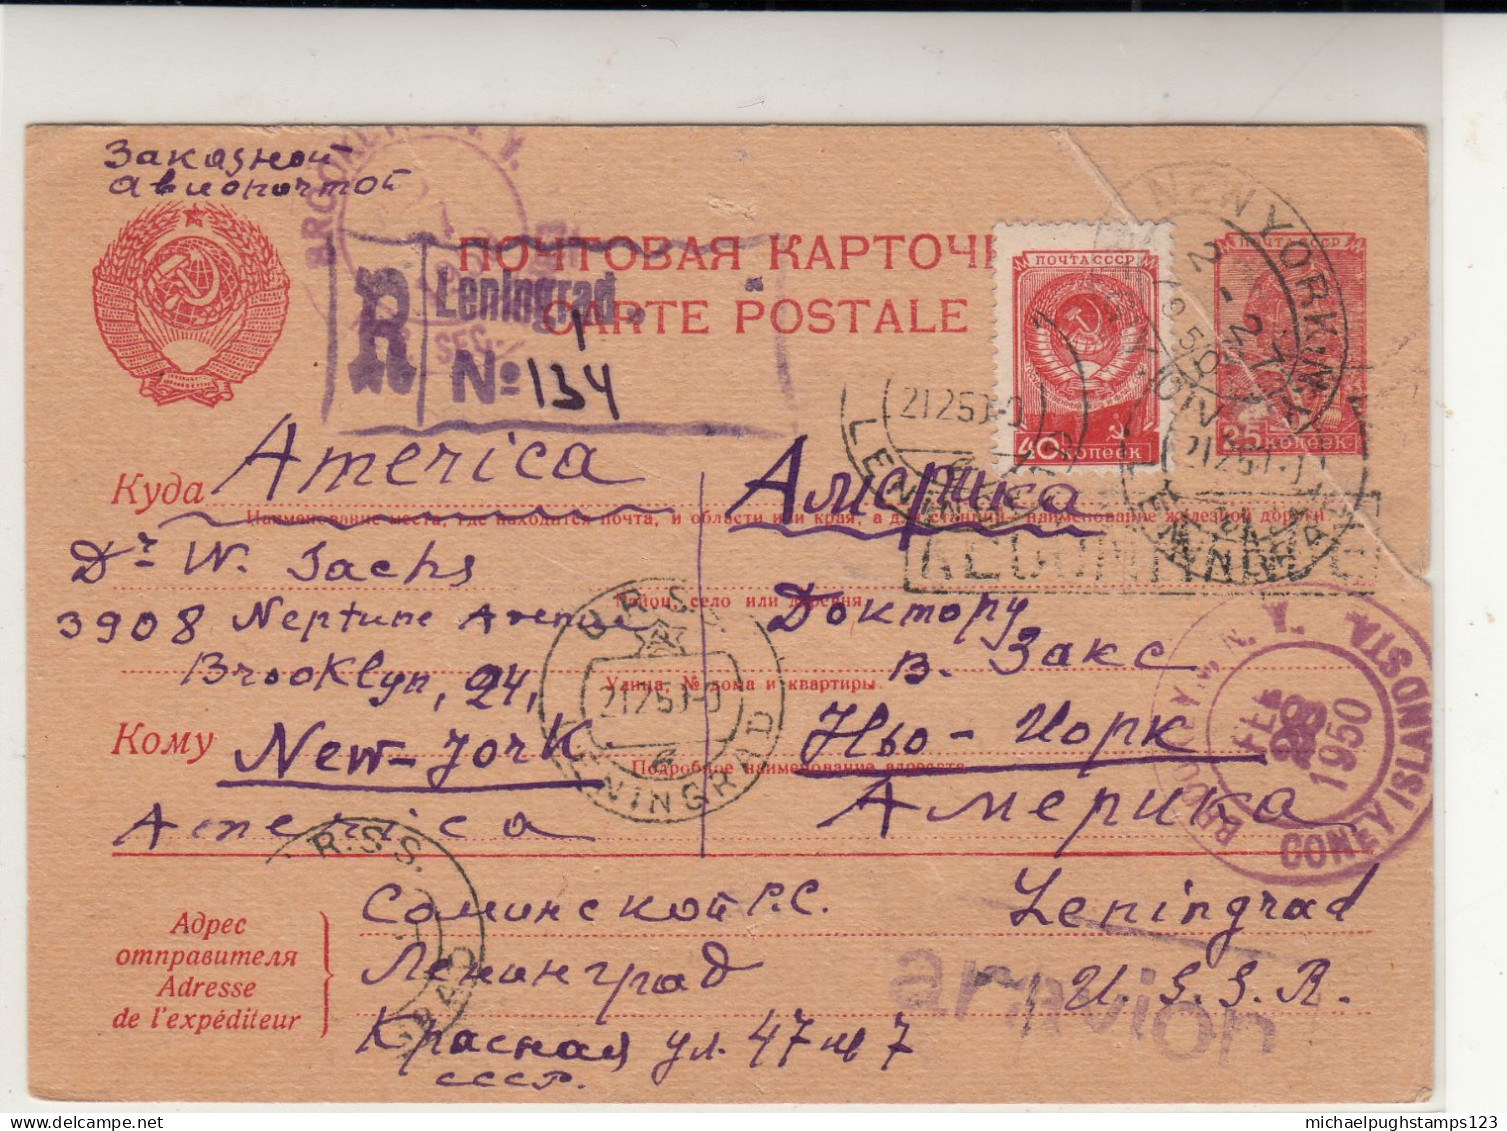 Заказной
авиопочтой
ПОЧТОВАЯ КАРТОЧ
CARTE POSTALE
R Leningrad 1
№ 134
ПОЧТА СССР
40 КОПЕЕК
ПОЧТА СССР
25 КОПЕЕК
NEW YORK, N.Y.
21250
LENINGRAD
Куда America Америка
Наименование места, где находится почта, и области или края, а для станций, наименование железной дороги
RECOMMANDÉ
Dr W. Sachs
Район, село или деревня
3908 Neptune Avenue Доктору
Brooklyn, 24, В. Закс
Улица, № дома и квартиры
Кому New-York Нью-Йорк
Подробное наименование адресата
America Америка
U.R.S.S.
21250
LENINGRAD
BROOKLYN, N.Y.
FEB
28
1950
CONEY ISLAND STA.
R.S.S.
Адрес
отправителя
Adresse
de l'expéditeur
Соминской Р.С. Leningrad
Ленинград U.S.S.R.
par avion
Красная ул. 47 кв 7
СССР.
michaelpughstamps123